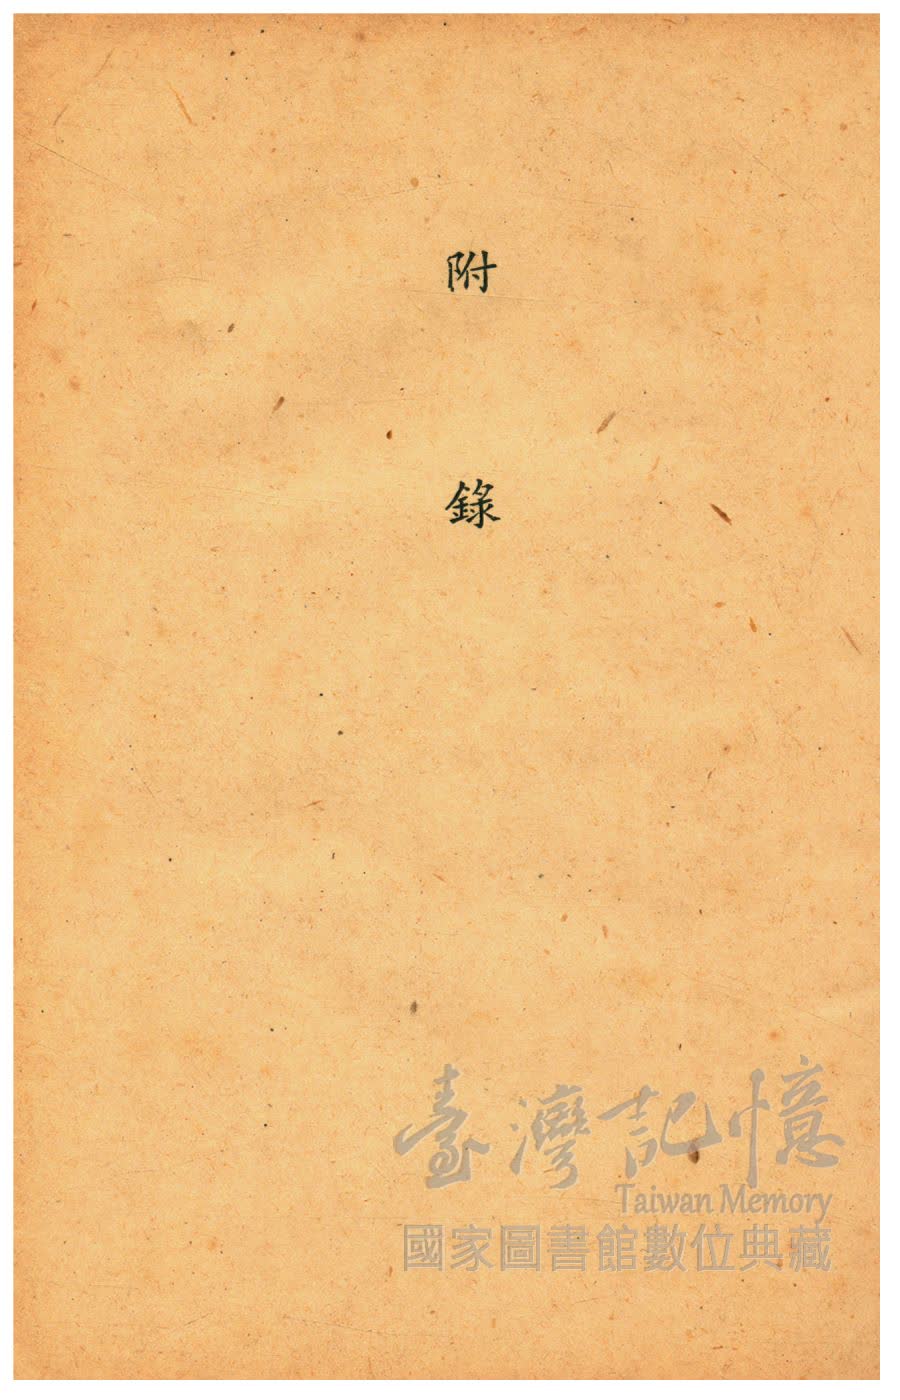 附錄
臺灣記憶
Taiwan Memory
國家圖書館數位典藏